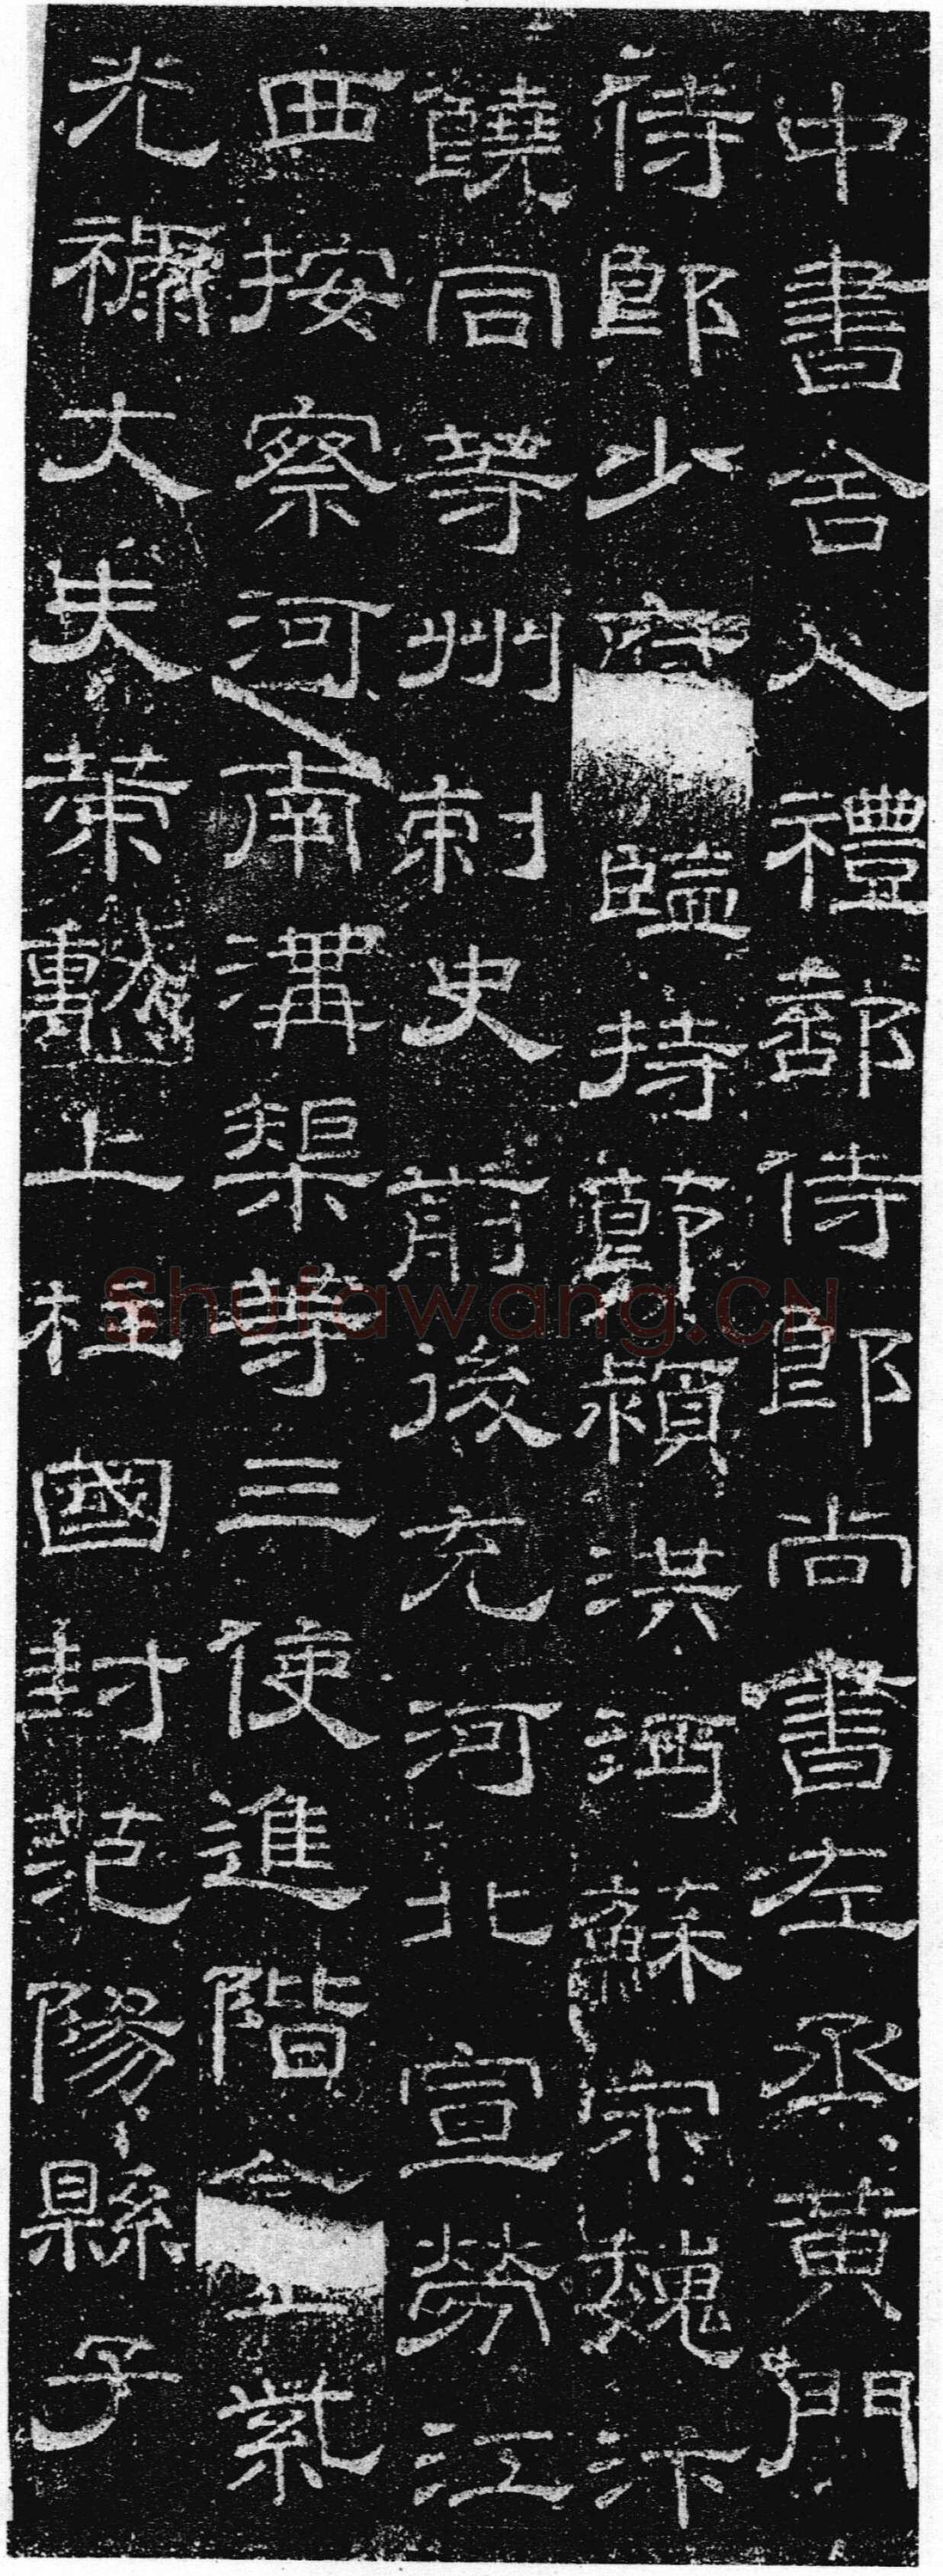 中書舍人禮部侍郎尚書左丞黃門
侍郎少府監持節潁洪沔蘇宗魏汴
饒同等州刺史前後充河北宣勞江
西按察河南溝渠等三使進階金紫
光祿大夫策勳上柱國封范陽縣子
Shufawang.CN